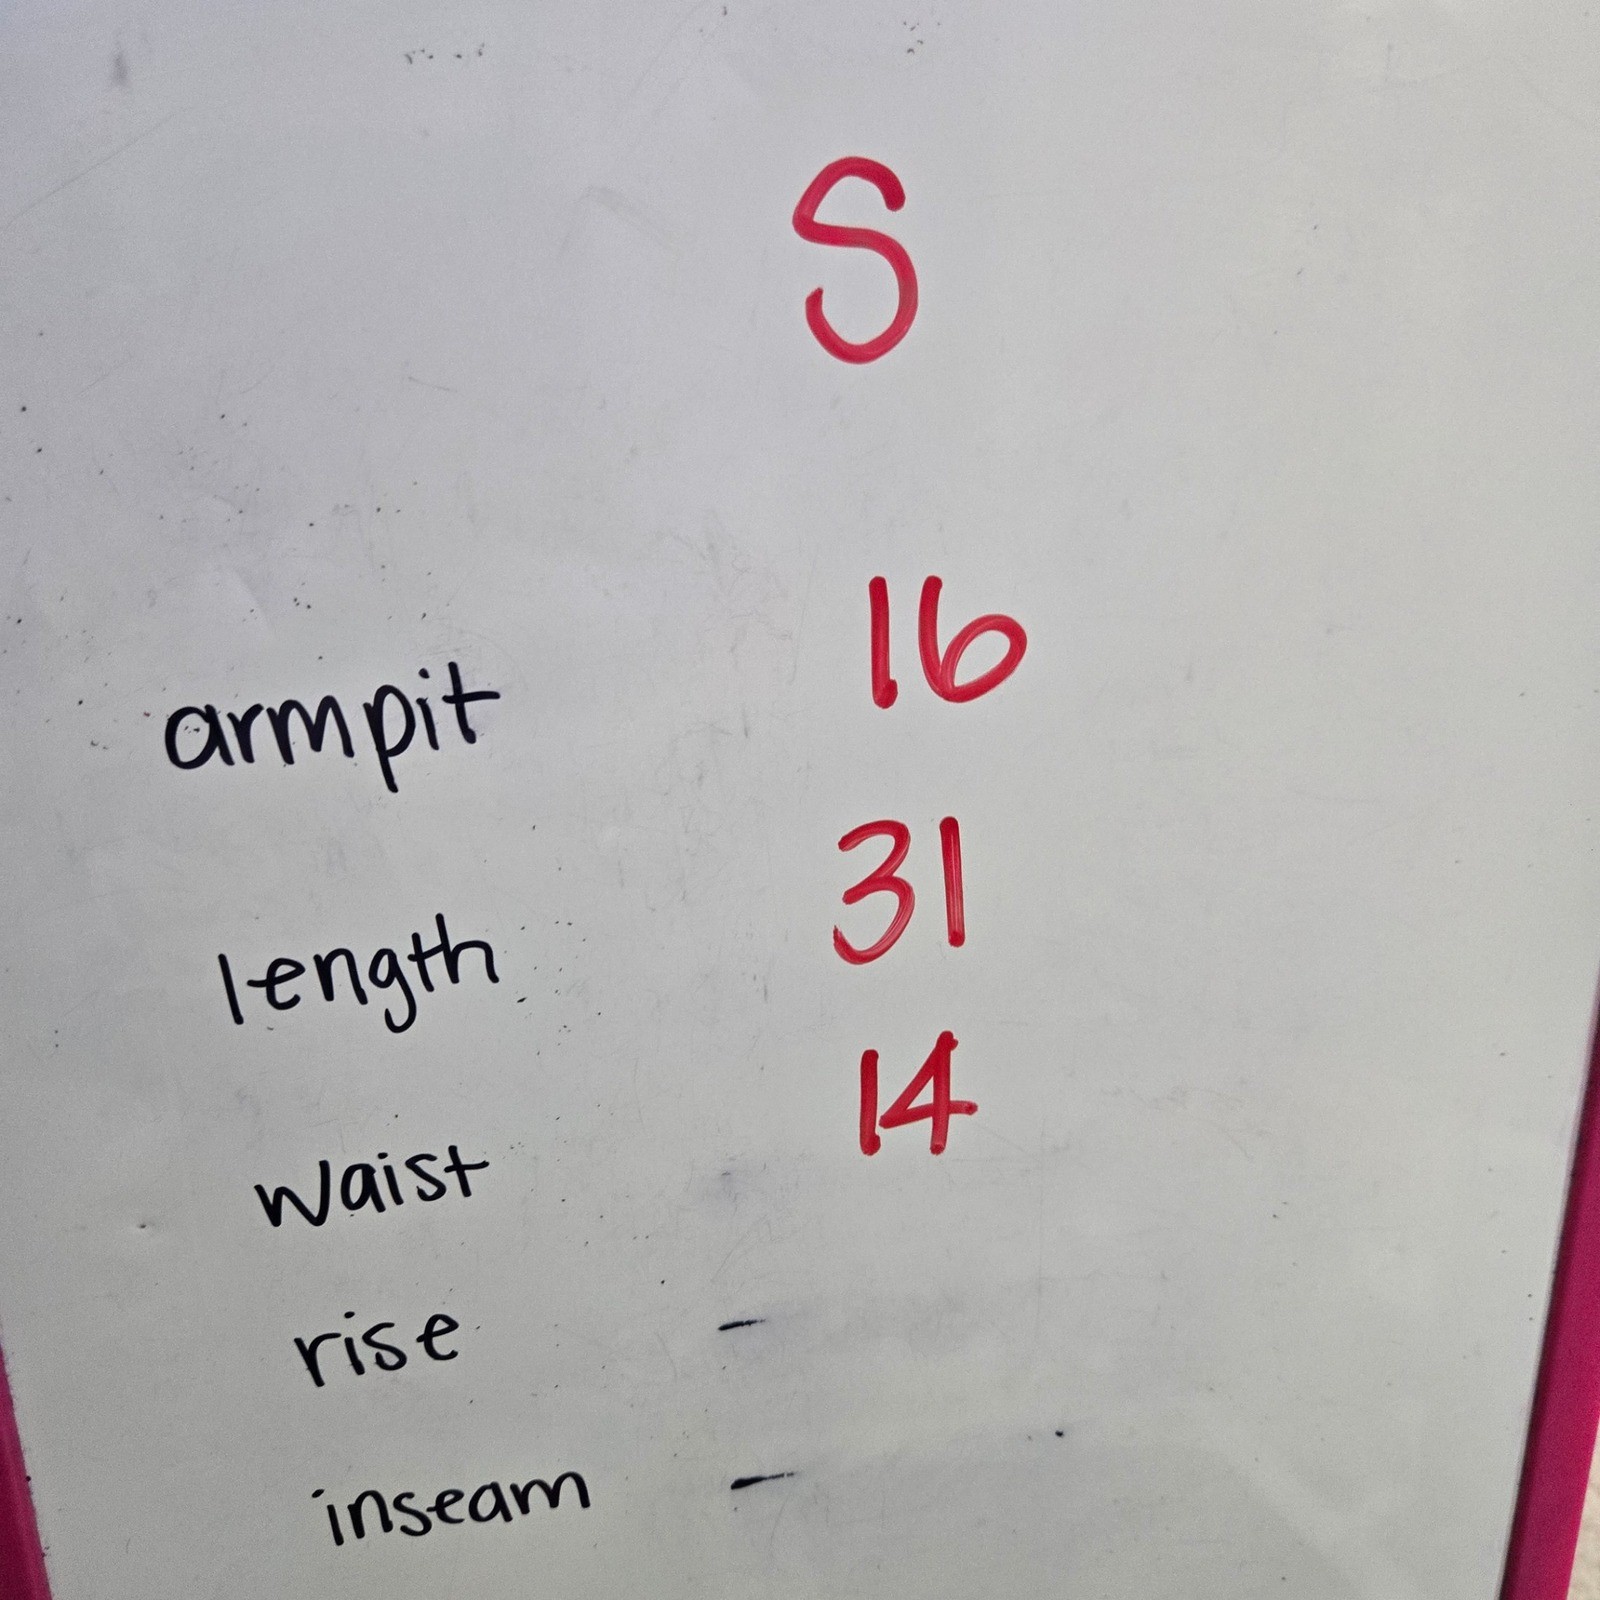 S
armpit 16
length 31
waist 14
rise -
inseam -